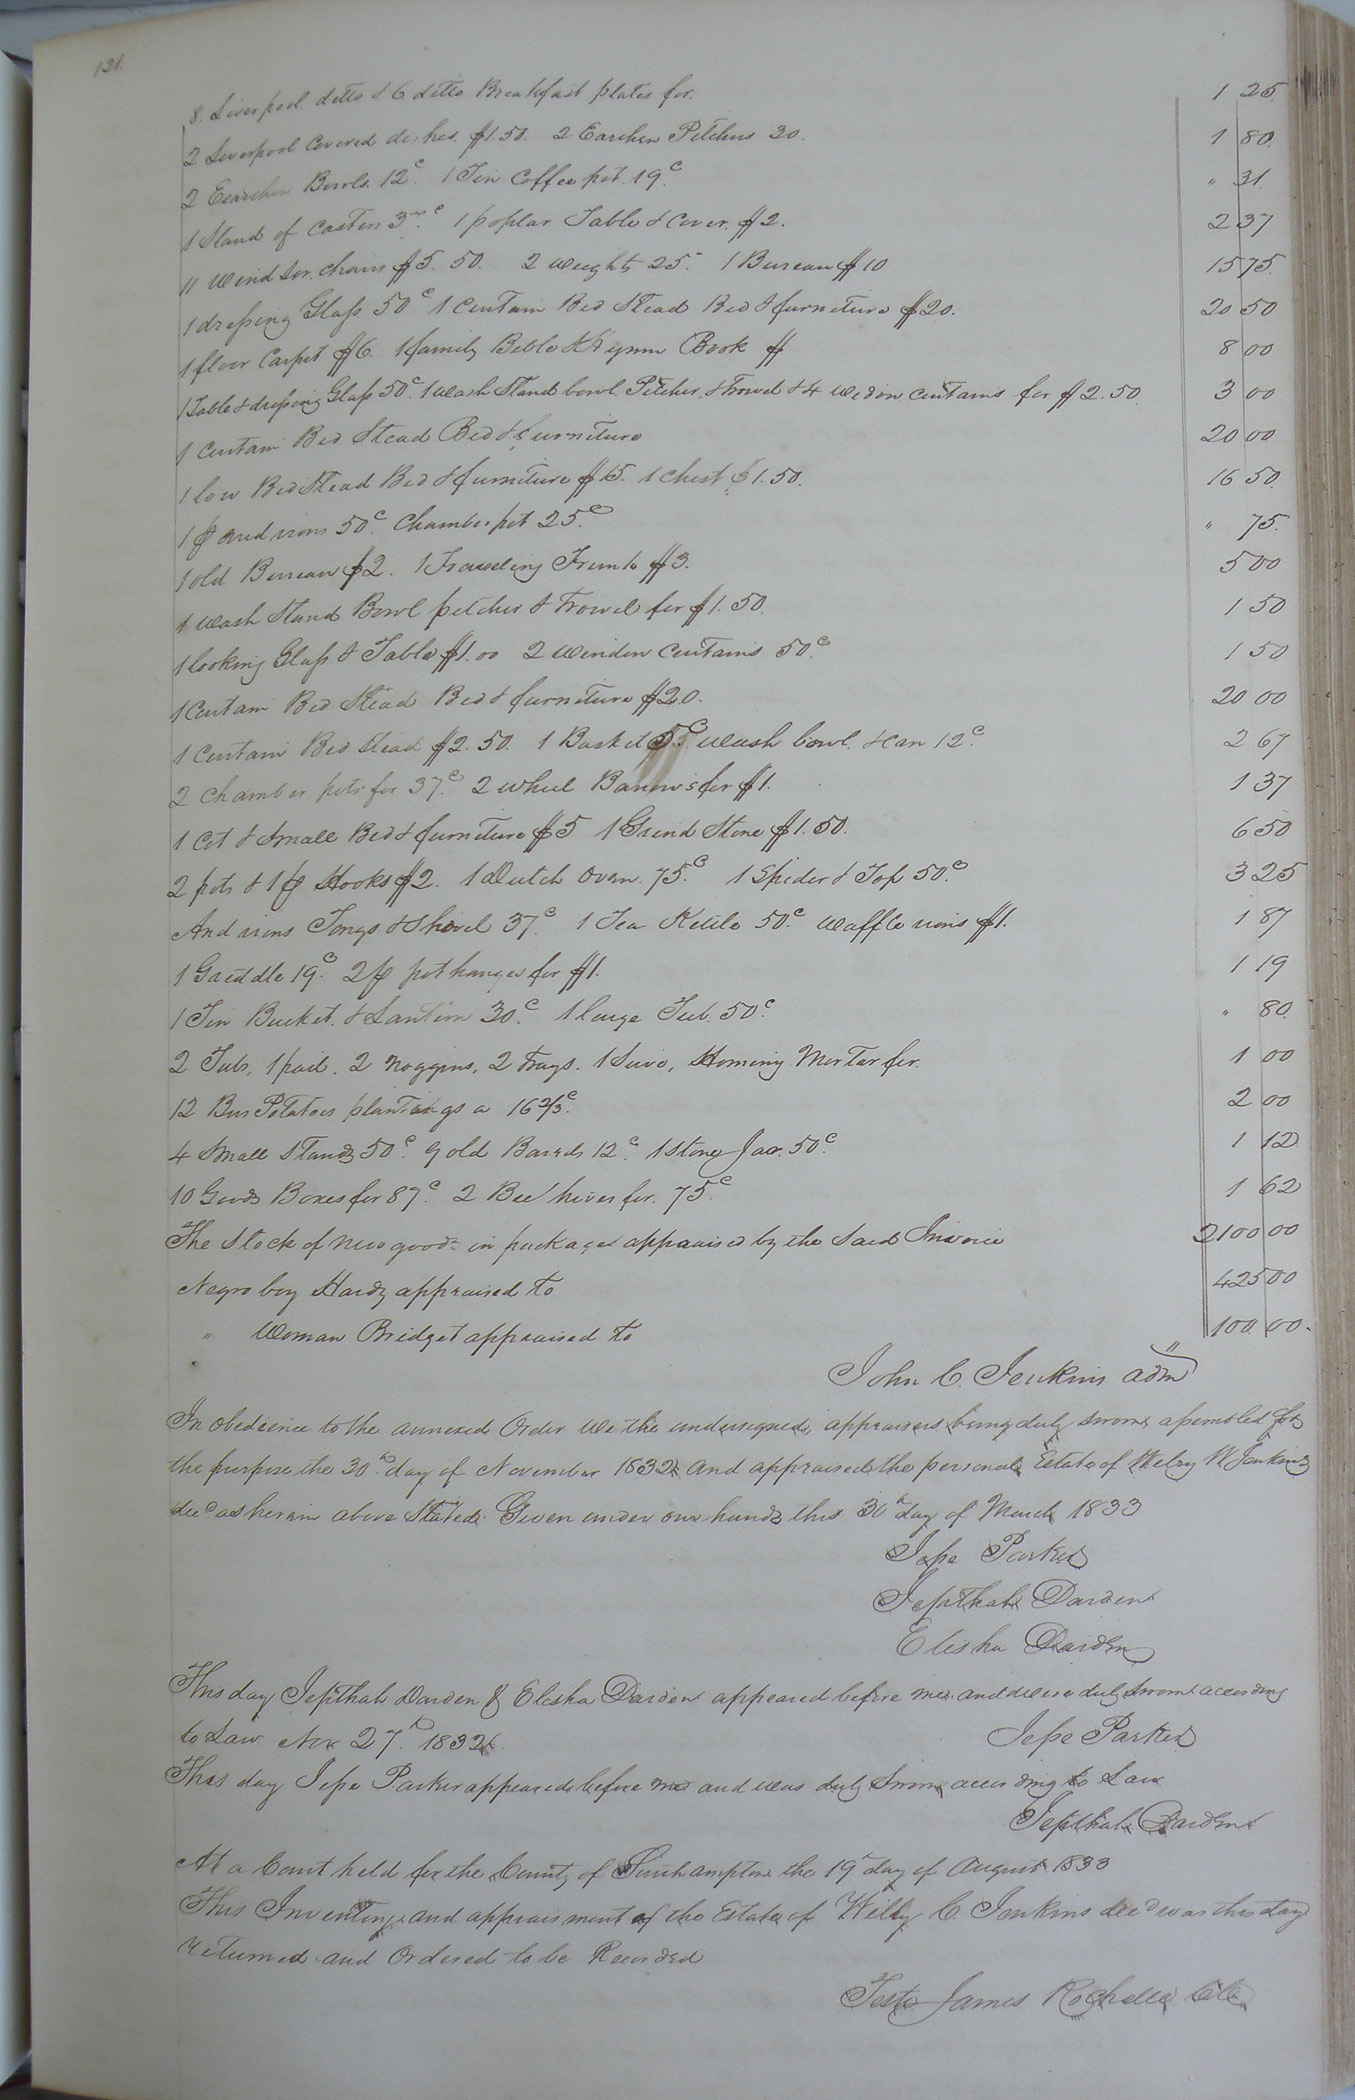 121.
8. Liverpool ditto & 6 ditto Breakfast plates for. 1 25
2 Liverpool Covered dishes. $1.50. 2 Earthen Pitchers 30. 1 80.
2 Earthen Bowls. 12c. 1 Tin Coffee pot. 19c " 31.
1 Stand of Casters 37c. 1 poplar Table & Cover. $2. 2 37
11 Windsor. chairs $5. 50. 2 weights 25. 1 Bureau $10 15 75.
1 dressing Glass 50c 1 Curtain Bed Stead Bed & furniture $20. 20 50
1 floor Carpet $6. 1 family Bible & Hymn Book $ 8 00
1 Table & dressing Glass 50c. 1 wash Stand bowl Pitcher, & Trowel & 4 widow curtains for $2.50 3 00
1 Curtain Bed Stead Bed & furniture 20 00
1 low Bed Stead Bed & furniture $15. 1 Chest $1.50. 16 50.
1 pr andirons 50c. Chamber pot 25c " 75.
1 old Bureau $2. 1 Traveling Trunk $3. 5 00
1 wash Stand Bowl pitcher & Trowel for $1.50. 1 50
1 looking Glass & Table $1.00 2 window curtains 50c. 1 50
1 Curtain Bed Stead Bed & furniture $20. 20 00
1 Curtain Bed Stead $2.50. 1 Basket 5c. wash bowl. & can 12c. 2 67
2 chamber pots for 37c. 2 wheel Barrows for $1. 1 37
1 Cot & Small Bed & furniture $5 1 Grind Stone $1.50. 6 50
2 pots & 1 pr Hooks $2. 1 Dutch Oven. 75c. 1 Spider & Top 50c. 3 25
Andirons Tongs & Shovel 37c. 1 Tea Kettle 50c. waffle irons $1. 1 87
1 Griddle 19c. 2 pr pot hangers for $1. 1 19
1 Tin Bucket. & Lantern 30c. 1 large Tub. 50c. " 80.
2 Tubs, 1 pail. 2 noggins, 2 Trays. 1 Sive, Hominy Mortar for. 1 00
12 Bus Potatoes plantings a 16 2/3c. 2 00
4 Small Stands 50c. 9 old Barrels 12c. 1 Stone Jar. 50c. 1 12
10 Goods Boxes for 87c. 2 Bee hives for. 75c 1 62
The Stock of new goods in packages appraised by the Said Invoice 2100 00
Negro boy Hardy appraised to 425 00
" Woman Bridget appraised to 100 00.
John C. Jenkins adm
In obedience to the annexed Order We the undersigned, appraisers being duly sworn, assembled for
the purpose the 30th day of November 1832 and appraised the personal Estate of Welry W Jenkins
decd as herein above Stated. Given under our hands this 30th day of March 1833
Jesse Parker
Jepthah Darden
Elisha Darden
This day Jepthah Darden & Elisha Darden appeared before me and were duly Sworn according
to Law Nov 27th 1832
Jesse Parker
This day Jesse Parker appeared before me and was duly Sworn according to Law
Jepthah Darden
At a Court held for the County of Southampton the 19th day of August 1833
This Inventory and appraisment of the Estate of Wilry C. Jenkins decd was this day
returned and Ordered to be Recorded
Teste James Rochelle Clk